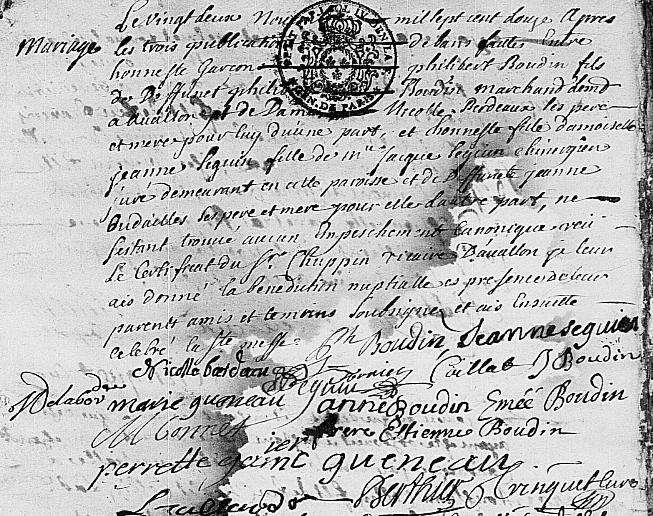 Le vingt deux Nov mil sept cent douze Apres
Mariage les trois publications de bans faites Entre
honneste Garçon philibert Boudin fils
de Deffunct phili Boudin marchand demt
a avallon et de Dame Nicolle Bordeaux les pere
et mere pour luy d'une part, et honneste fille damoiselle
jeanne Seguin fille de me jacque Seguin chirurgien
juré demeurant en cette paroisse et de Deffuncte jeanne
les pere et mere pour elle dautre part, ne
sestant trouvé aucun Empeschement Canonique veu
Le Certificat du Sr. Chuppin vicaire Davallon je leur
ais donné la benediction nuptialle es presence de leur
parents amis et temoins soubsignez et ais Ensuitte
celebré la Ste messe
ph Boudin Jeanne seguien
Nicolle bordeau Boudin
marie queneau anne Boudin Emée Boudin
frere Estienne Boudin
perrette queneau
Berthier curé